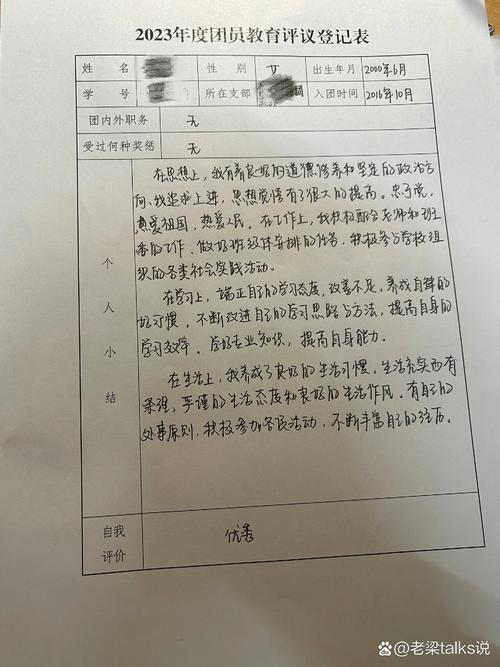 2023年度团员教育评议登记表
姓 名 性 别 女 出生年月 2000年6月
学 号 所在支部 团 入团时间 2016年10月
团内外职务 无
受过何种奖惩 无
个人小结
在思想上，我有着良好的道德修养和坚定的政治方
向、我追求上进，思想觉悟有了很大的提高。忠于党，
热爱祖国，热爱人民。在工作上，我积极配合老师和班
委的工作、做好班级体安排的任务，积极参与学校组
织的各类社会实践活动。
在学习上，端正自己的学习态度，改善不足，养成自律的
好习惯，不断改进自己的学习思路与方法，提高自身的
学习效率。学好专业知识，提高自身能力。
在生活上，我养成了良好的生活习惯，生活充实而有
条理，严谨的生活态度和良好的生活作风。有自己的
处事原则，积极参加各民活动，不断丰富自己的经历。
自我
评价
优秀
@老梁talks说